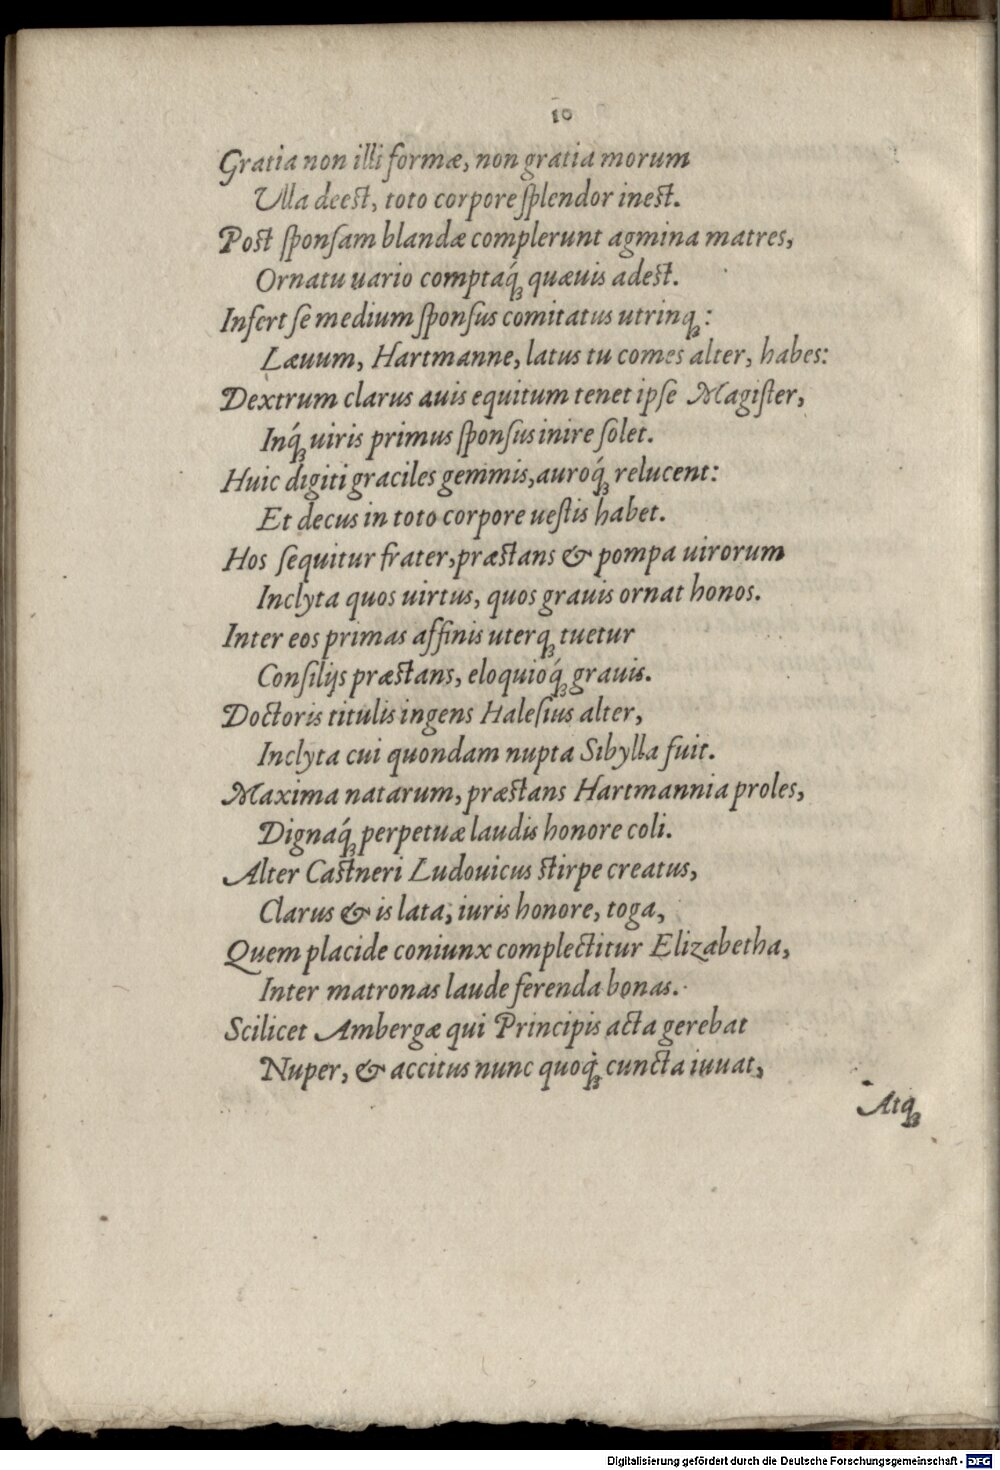 10
Gratia non illi formæ, non gratia morum
Ulla deest, toto corpore ſplendor inest.
Post ſponſam blandæ complerunt agmina matres,
Ornatu uario comptaq́ꝫ quæuis adest.
Infert ſe medium ſponſus comitatus utrinqꝫ:
Læuum, Hartmanne, latus tu comes alter, habes:
Dextrum clarus auis equitum tenet ipſe Magiſter,
Inq́ꝫ uiris primus ſponſus inire ſolet.
Huic digiti graciles gemmis, auroq́ꝫ relucent:
Et decus in toto corpore ueſtis habet.
Hos ſequitur frater, præstans & pompa uirorum
Inclyta quos uirtus, quos grauis ornat honos.
Inter eos primas affinis uterqꝫ tuetur
Conſilijs præstans, eloquioq́ꝫ grauis.
Doctoris titulis ingens Haleſius alter,
Inclyta cui quondam nupta Sibylla fuit.
Maxima natarum, præstans Hartmannia proles,
Dignaq́ꝫ perpetuæ laudis honore coli.
Alter Castneri Ludouicus stirpe creatus,
Clarus & is lata, iuris honore, toga,
Quem placide coniunx complectitur Elizabetha,
Inter matronas laude ferenda bonas.
Scilicet Ambergæ qui Principis acta gerebat
Nuper, & accitus nunc quoq́ꝫ cuncta iuuat,
Atqꝫ
Digitalisierung gefördert durch die Deutsche Forschungsgemeinschaft - DFG